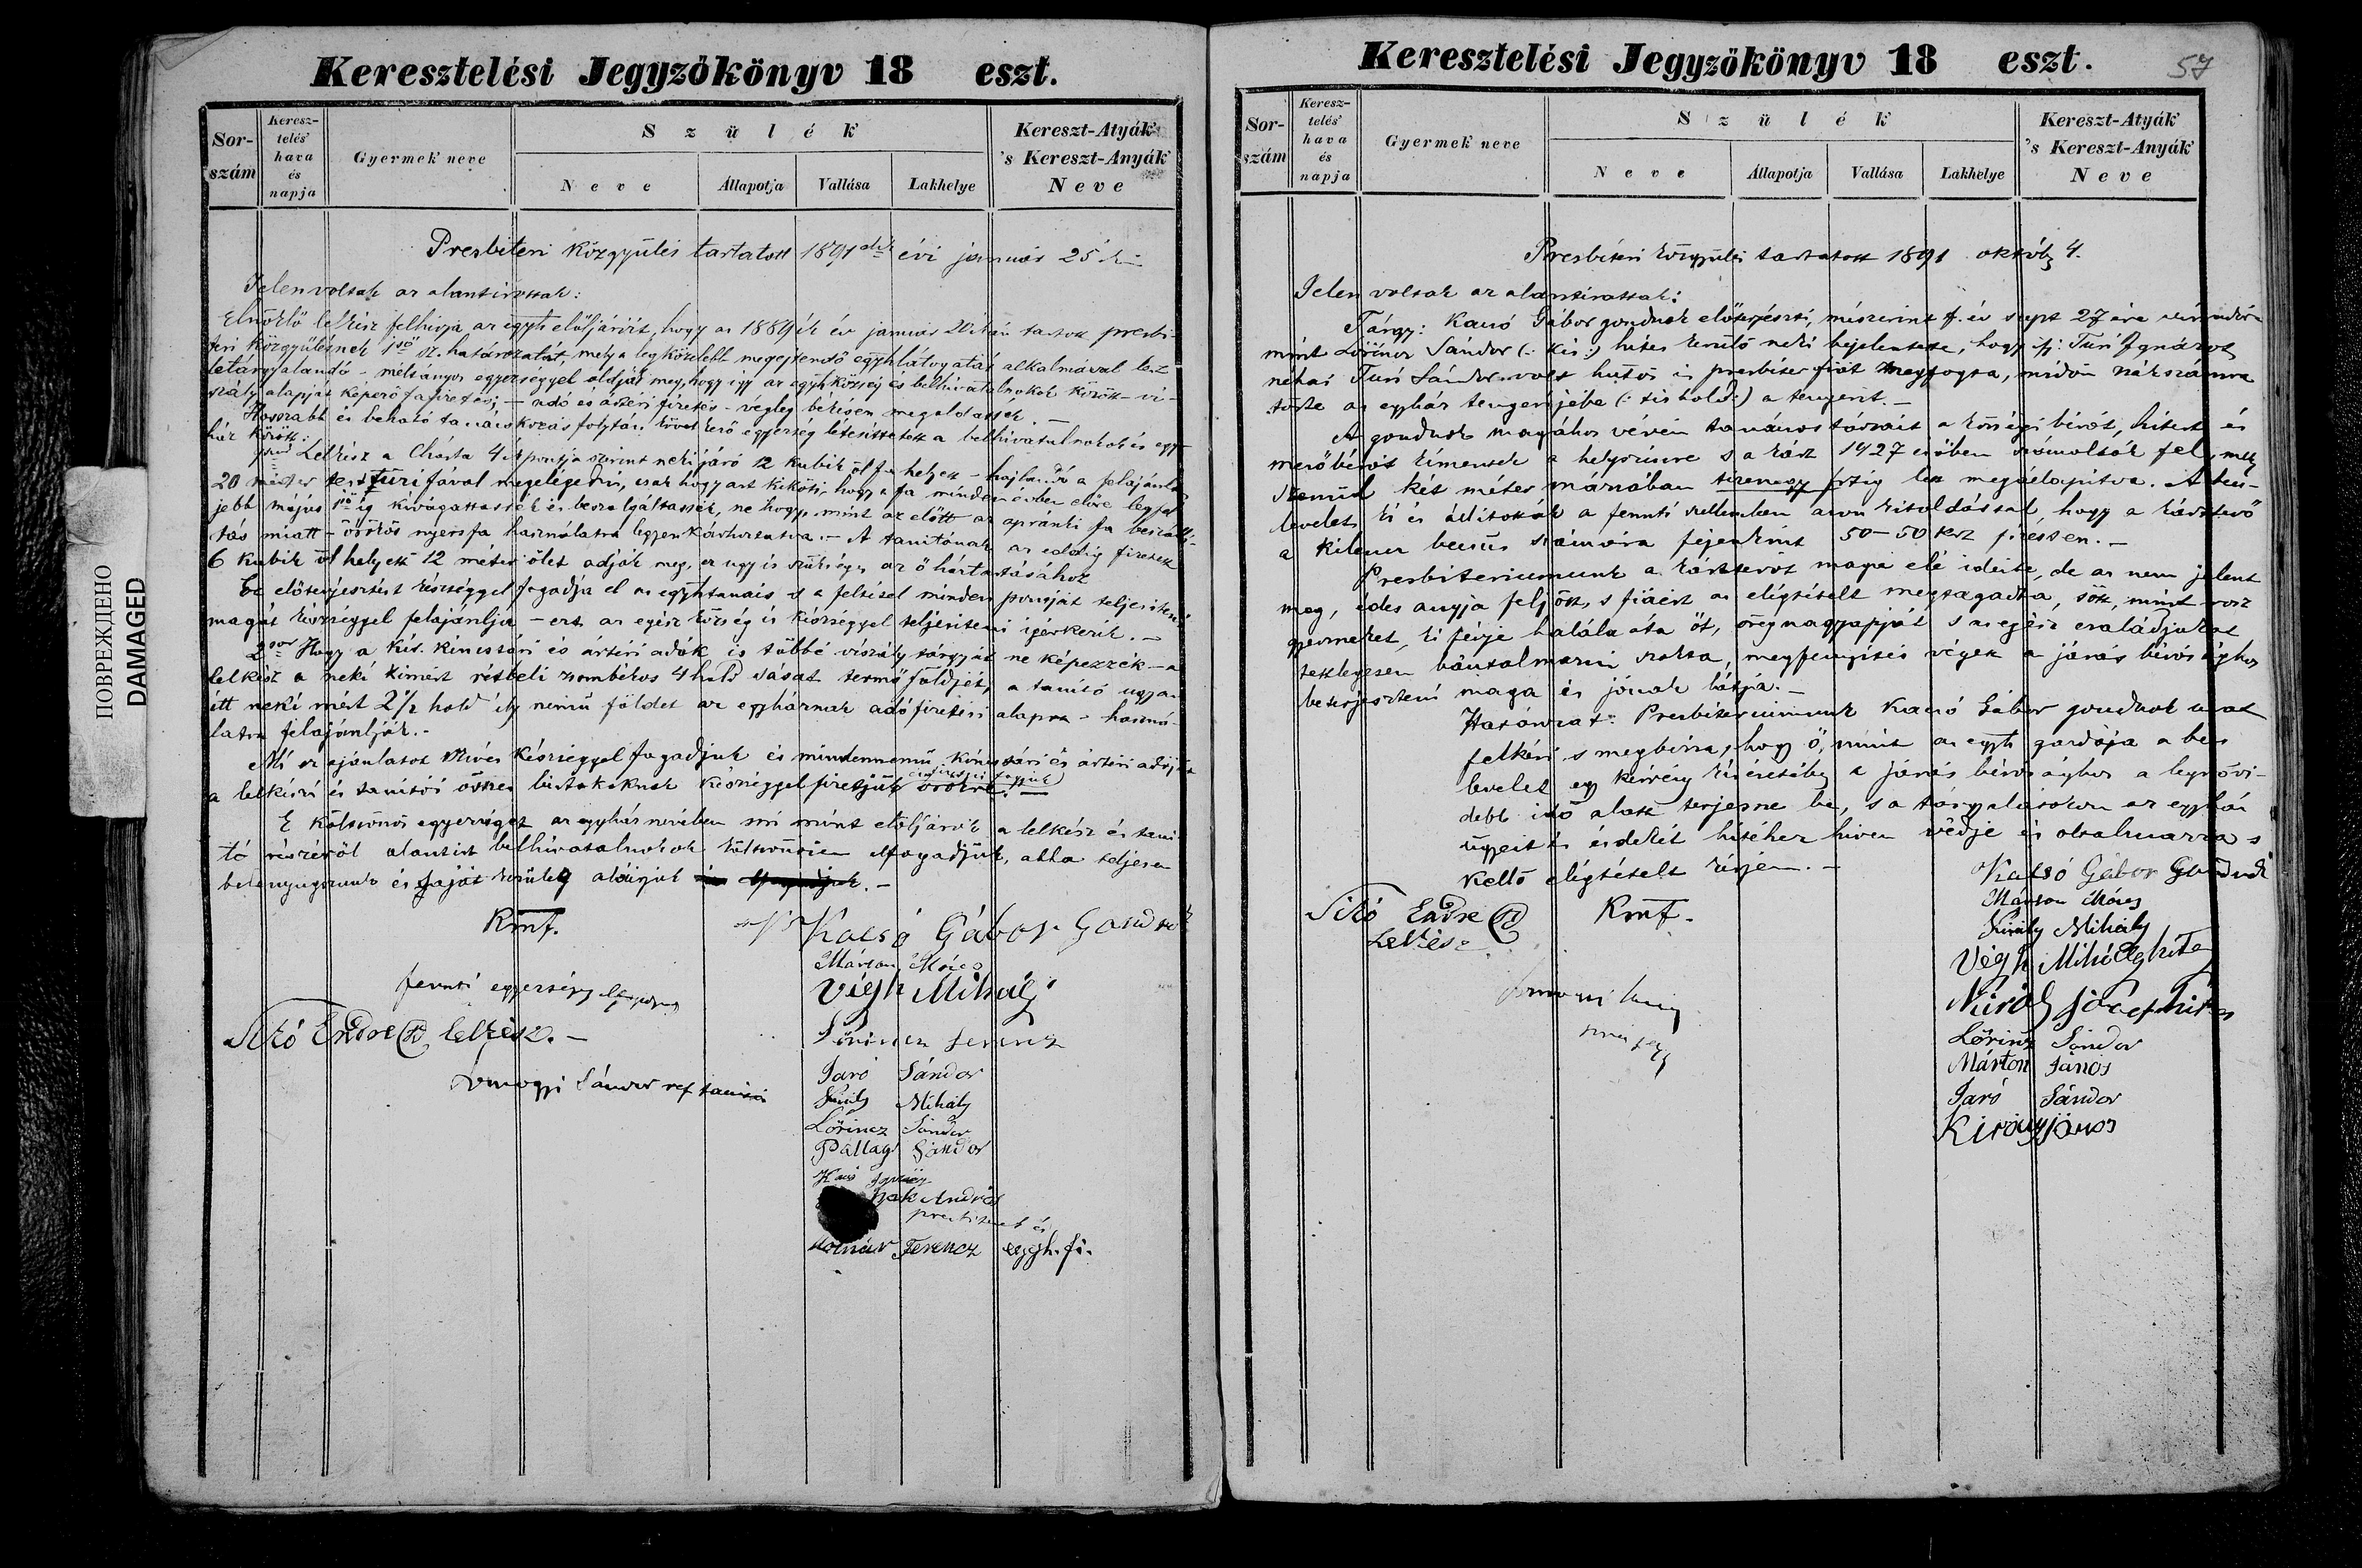 Keresztelési Jegyzökönyv 18 eszt.
Sor-szám
Keresz-telés' hava és napja
Gyermek' neve
Szülék
Neve
Állapotja
Vallása
Lakhelye
Kereszt-Atyák 's Kereszt-Anyák Neve
Presbiteri Közgyülés tartatott 1891 évi január 25
Jelenvoltak az alantirottak:
Elnöklő lelkész felhivja az egyh elöljáróit, hogy az 1889ik év január tartott presbi-
teri közgyülésnek 1ső sz. határozatát, mely a legközelebb megejtendő egyhlátogatás alkalmával lesz
letárgyalandó - méltányos egyezséggel oldják meg, hogy igy az egyh község és belhivatalnokok között - vi-
szály alapját képező fafizetés; - adó és ártéri fizetés - végleg békésen megoldassék. -
Hosszabb és beható tanácskozás folytán követkző egyezség létesíttetett a belhivatalnokok és egy-
ház között:
Lelkész a Chárta 4ik pontja szerint neki járó 12 kubik öl fa helyett - hajlandó a felajánlt
20 méter fával megelégedni, csak hogy azt kiköti, hogy a fa minden évben előre legfel
jebb május 1ső ig kivágattassék és beszolgáltassék, ne hogy mint az előtt az apránki fa beszállí-
tás miatt - örökös nyersfa használatra legyen kárhoztatva. - A tanitónak az eddig fizetett
6 kubik öl helyett 12 méter ölet adják meg, ez ugyis szükséges az ő háztartásához
Ez előterjesztést készséggel fogadja el az egyhtanács s a feltétel minden pontját teljesiteni
magát készséggel felajánlja - ezt az egész község is készséggel teljesiteni igérkezik. -
2szor Hogy a Kir. kincstári és ártéri adók is többé viszály tárgyát ne képezzék - a
lelkész a neki kimért rétbeli zsombékos 4 hold sásat termő földjét, a tanító ugyan
itt neki mért 2 1/2 hold ily nemű földet az egyháznak adófizetési alapra - haszná-
latra felajánlják. -
Mi ez ajánlatot szíves készséggel fogadjuk és mindennemű kincstári és ártéri adóját
a lelkészi és tanitói összes birtokoknak készséggel fizetjük örökre.
E kölcsönös egyezséget az egyház nevében mi mint elöljárók a lelkész és tani-
tó részéről alantirt belhivatalnokok kölcsönösen elfogadjuk, abba teljesen
belenyugszunk és saját kezüleg aláirjuk
Kmf.
Kacsó Gábor Gondnok
Márton Móses
Végh Mihály
Lőrincz Ferencz
Jaró Sándor
Király Mihály
Lőrincz Sándor
Pallagi Sándor
András
presbiterek és
Molnár Ferencz egyh. fi.
fennti egyezség
Sikó Endre lelkész. -
Somogyi Sándor ref tanitó
Keresztelési Jegyzökönyv 18 eszt.
57
Sor-szám
Keresz-telés' hava és napja
Gyermek' neve
Szülék
Neve
Állapotja
Vallása
Lakhelye
Kereszt-Atyák 's Kereszt-Anyák Neve
Presbiteri közgyülés tartatott 1891 októb 4.
Jelen voltak az alantirottak:
Tárgy: Kacsó Gábor gondnok előterjeszti, miszerint f. év szept 27 ére
mint Lőrincz Sándor (: kis :) hites kerülő neki bejelentette, hogy ifj. Turi Ignáczot
néhai Turi Sándor volt hütös és presbiter fiát megfogta, midőn
törte az egyház tengerijébe (: tis hold :) a tengerit. -
A gondnok magához vévén tanácstársait a községi birót, hitest és
mezőbirót kimentek a helyszinre s a kárt 1427 csőben számolták fel, mely
szemül két méter mázsában tizenegy frtig lett megállapitva. A becs-
levelet ki is állitották a fennti értelemben azon kitoldással, hogy a kártevő
a kilencz becsüs számára fejenkint 50-50 krt fizessen. -
Presbiteriumunk a kártevőt maga elé idézte, de az nem jelent
meg, édes anyja feljött, s fiáért az elégtételt megtagadta, sőtt, mint rosz
gyermeket, ki férje halála óta őt, öregnagyapját s az egész családjukat
tettlegesen bántalmazni szokta, megfenyités végett a járás birósághoz
beterjeszteni maga is jónak látja. -
Határozat: Presbiteriumunk Kacsó Gábor gondnok urat
felkéri s megbizza, hogy ő, mint az egyh gazdája a becs
levelet egy kérvény kíséretében a járás birósághoz a legrövi-
debb idő alatt terjessze be, s a tárgyalásokon az egyház
ügyeit és érdekét hitéhez hiven védje és oltalmazza s
kellő elégtételt kérjen. -
Kmf.
Sikó Endre
Lelkész
Katsó Gábor Gondnok
Márton Móses
Király Mihály
Végh Mihály hites
Király József hites
Lőrincz Sándor
Márton János
Jaró Sándor
Király János
ПОВРЕЖДЕНО
DAMAGED